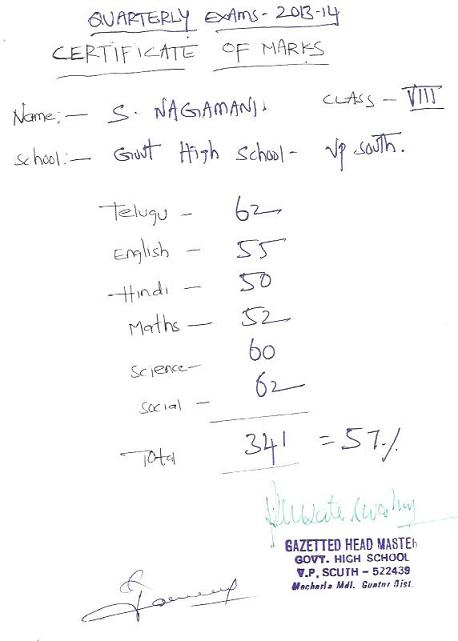 QUARTERLY EXAMS - 2013-14
CERTIFICATE OF MARKS
Name:- S. NAGAMANI. CLASS - VIII
School:- Govt High School - Vp South.
Telugu - 62
English - 55
Hindi - 50
Maths - 52
Science - 60
Social - 62
Total 341 = 57.%
GAZETTED HEAD MASTER
GOVT. HIGH SCHOOL
V.P. SOUTH - 522439
Macherla Mdl. Guntur Dist.